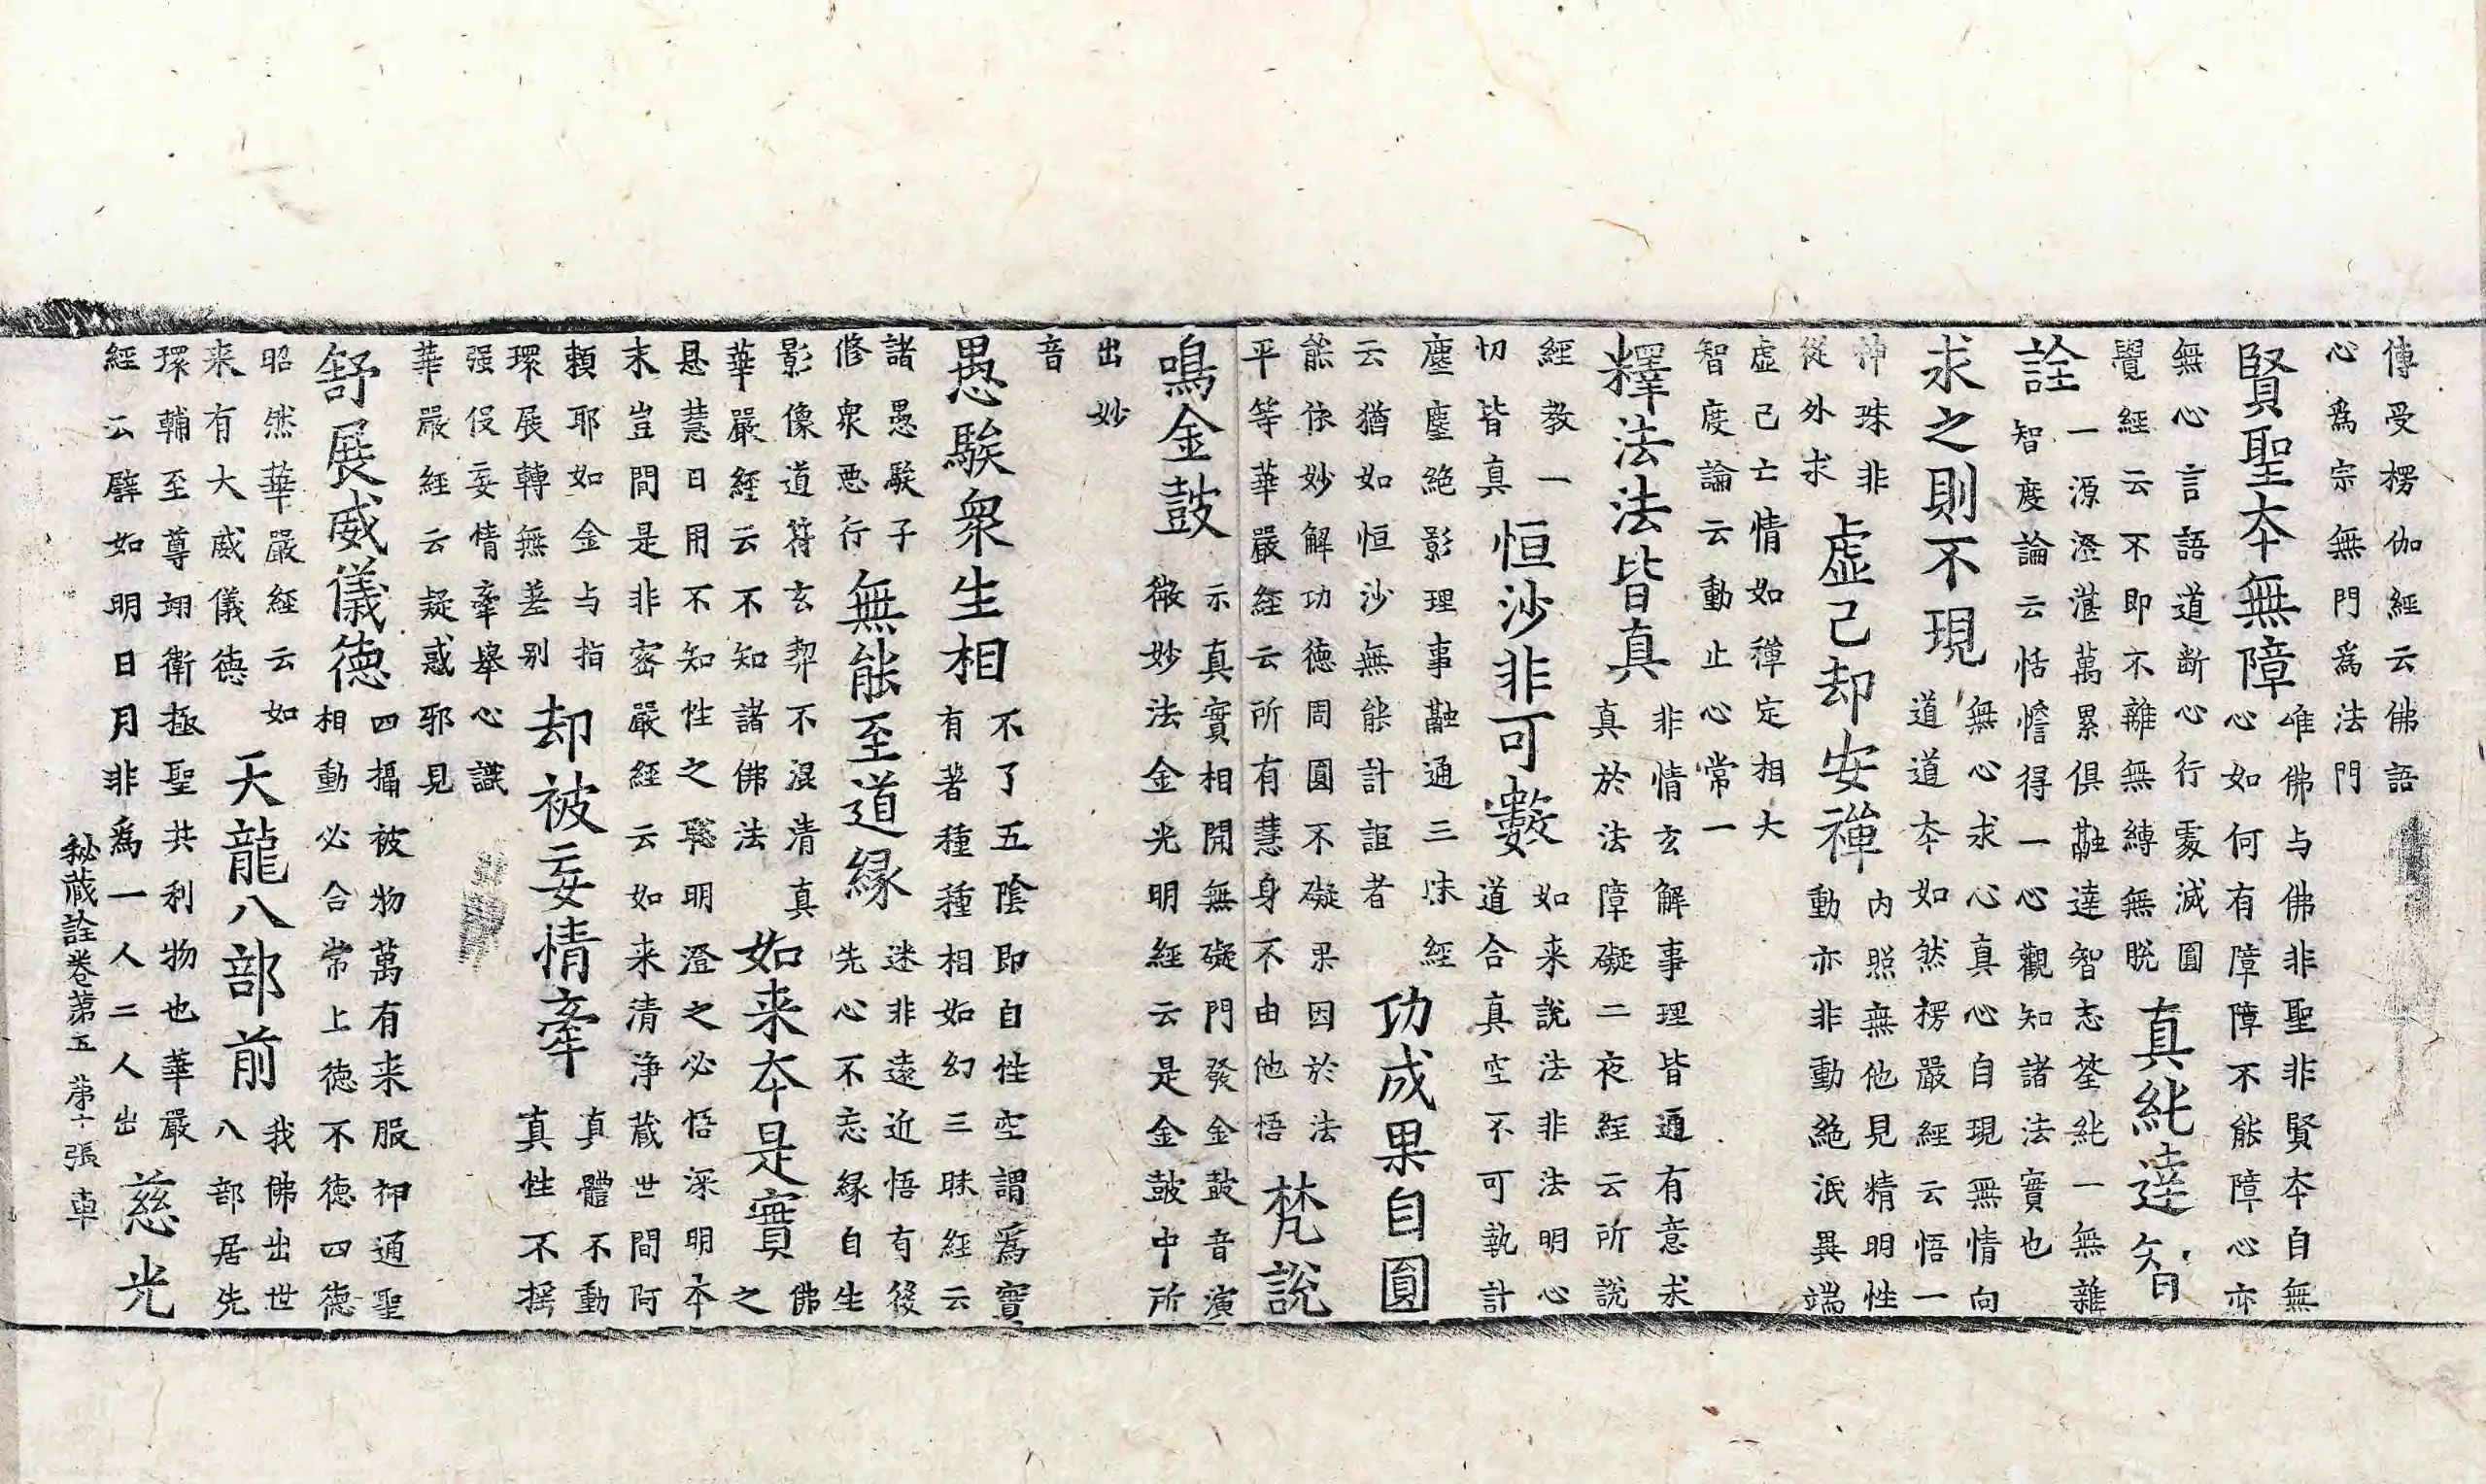 傳受楞伽經云佛語
心爲宗無門爲法門
賢聖本無障
唯佛与佛非聖非賢本自無
心如何有障障不能障心亦
無心言語道断心行處滅圓
覺經云不即不離無縛無脫
真純達智
詮
一源澄湛萬累俱融達智志筌純一無雜
智度論云恬憺得一心觀知諸法實也
求之則不現
無心求心真心自現無情向
道道本如然楞嚴經云悟一
神珠非
從外求
虛己却安禪
内照無他見精明性
動亦非動絶泯異端
虛己亡情如禪定相大
智度論云動止心常一
釋法法皆真
非情玄解事理皆通有意求
真於法障礙二夜經云所說
經教一
切皆真
恒沙非可數
如来說法非法明心
道合真空不可執計
塵塵絶影理事融通三昧經
云猶如恒沙無能計誼者
功成果自圓
能依妙解功德周圓不礙果因於法
平等華嚴經云所有慧身不由他悟
梵說
鳴金鼓
示真實相開無礙門發金鼓音演
微妙法金光明經云是金鼓中所
出妙
音
愚騃衆生相
不了五陰即自性空謂爲實
有著種種相如幻三昧經云
諸愚騃子
修衆惡行
無能至道縁
迷非遠近悟有後
先心不忘縁自生
影像道符玄契不混清真
華嚴經云不知諸佛法
如来本是實
佛
之
恳慧日用不知性之聡明澄之必悟深明本
末豈間是非密嚴經云如来清净藏世間阿
頼耶如金与指
環展轉無差别
却被妄情牽
真體不動
真性不揺
强役妄情牽舉心識
華嚴經云疑惑邪見
舒展威儀德
四攝被物萬有来服神通聖
相動必合常上德不德四德
昭然華嚴經云如
来有大威儀德
天龍八部前
我佛出世
八部居先
環輔至尊翊衛極聖共利物也華嚴
經云譬如明日月非爲一人二人出
慈光
秘藏詮卷第五 第十張 車